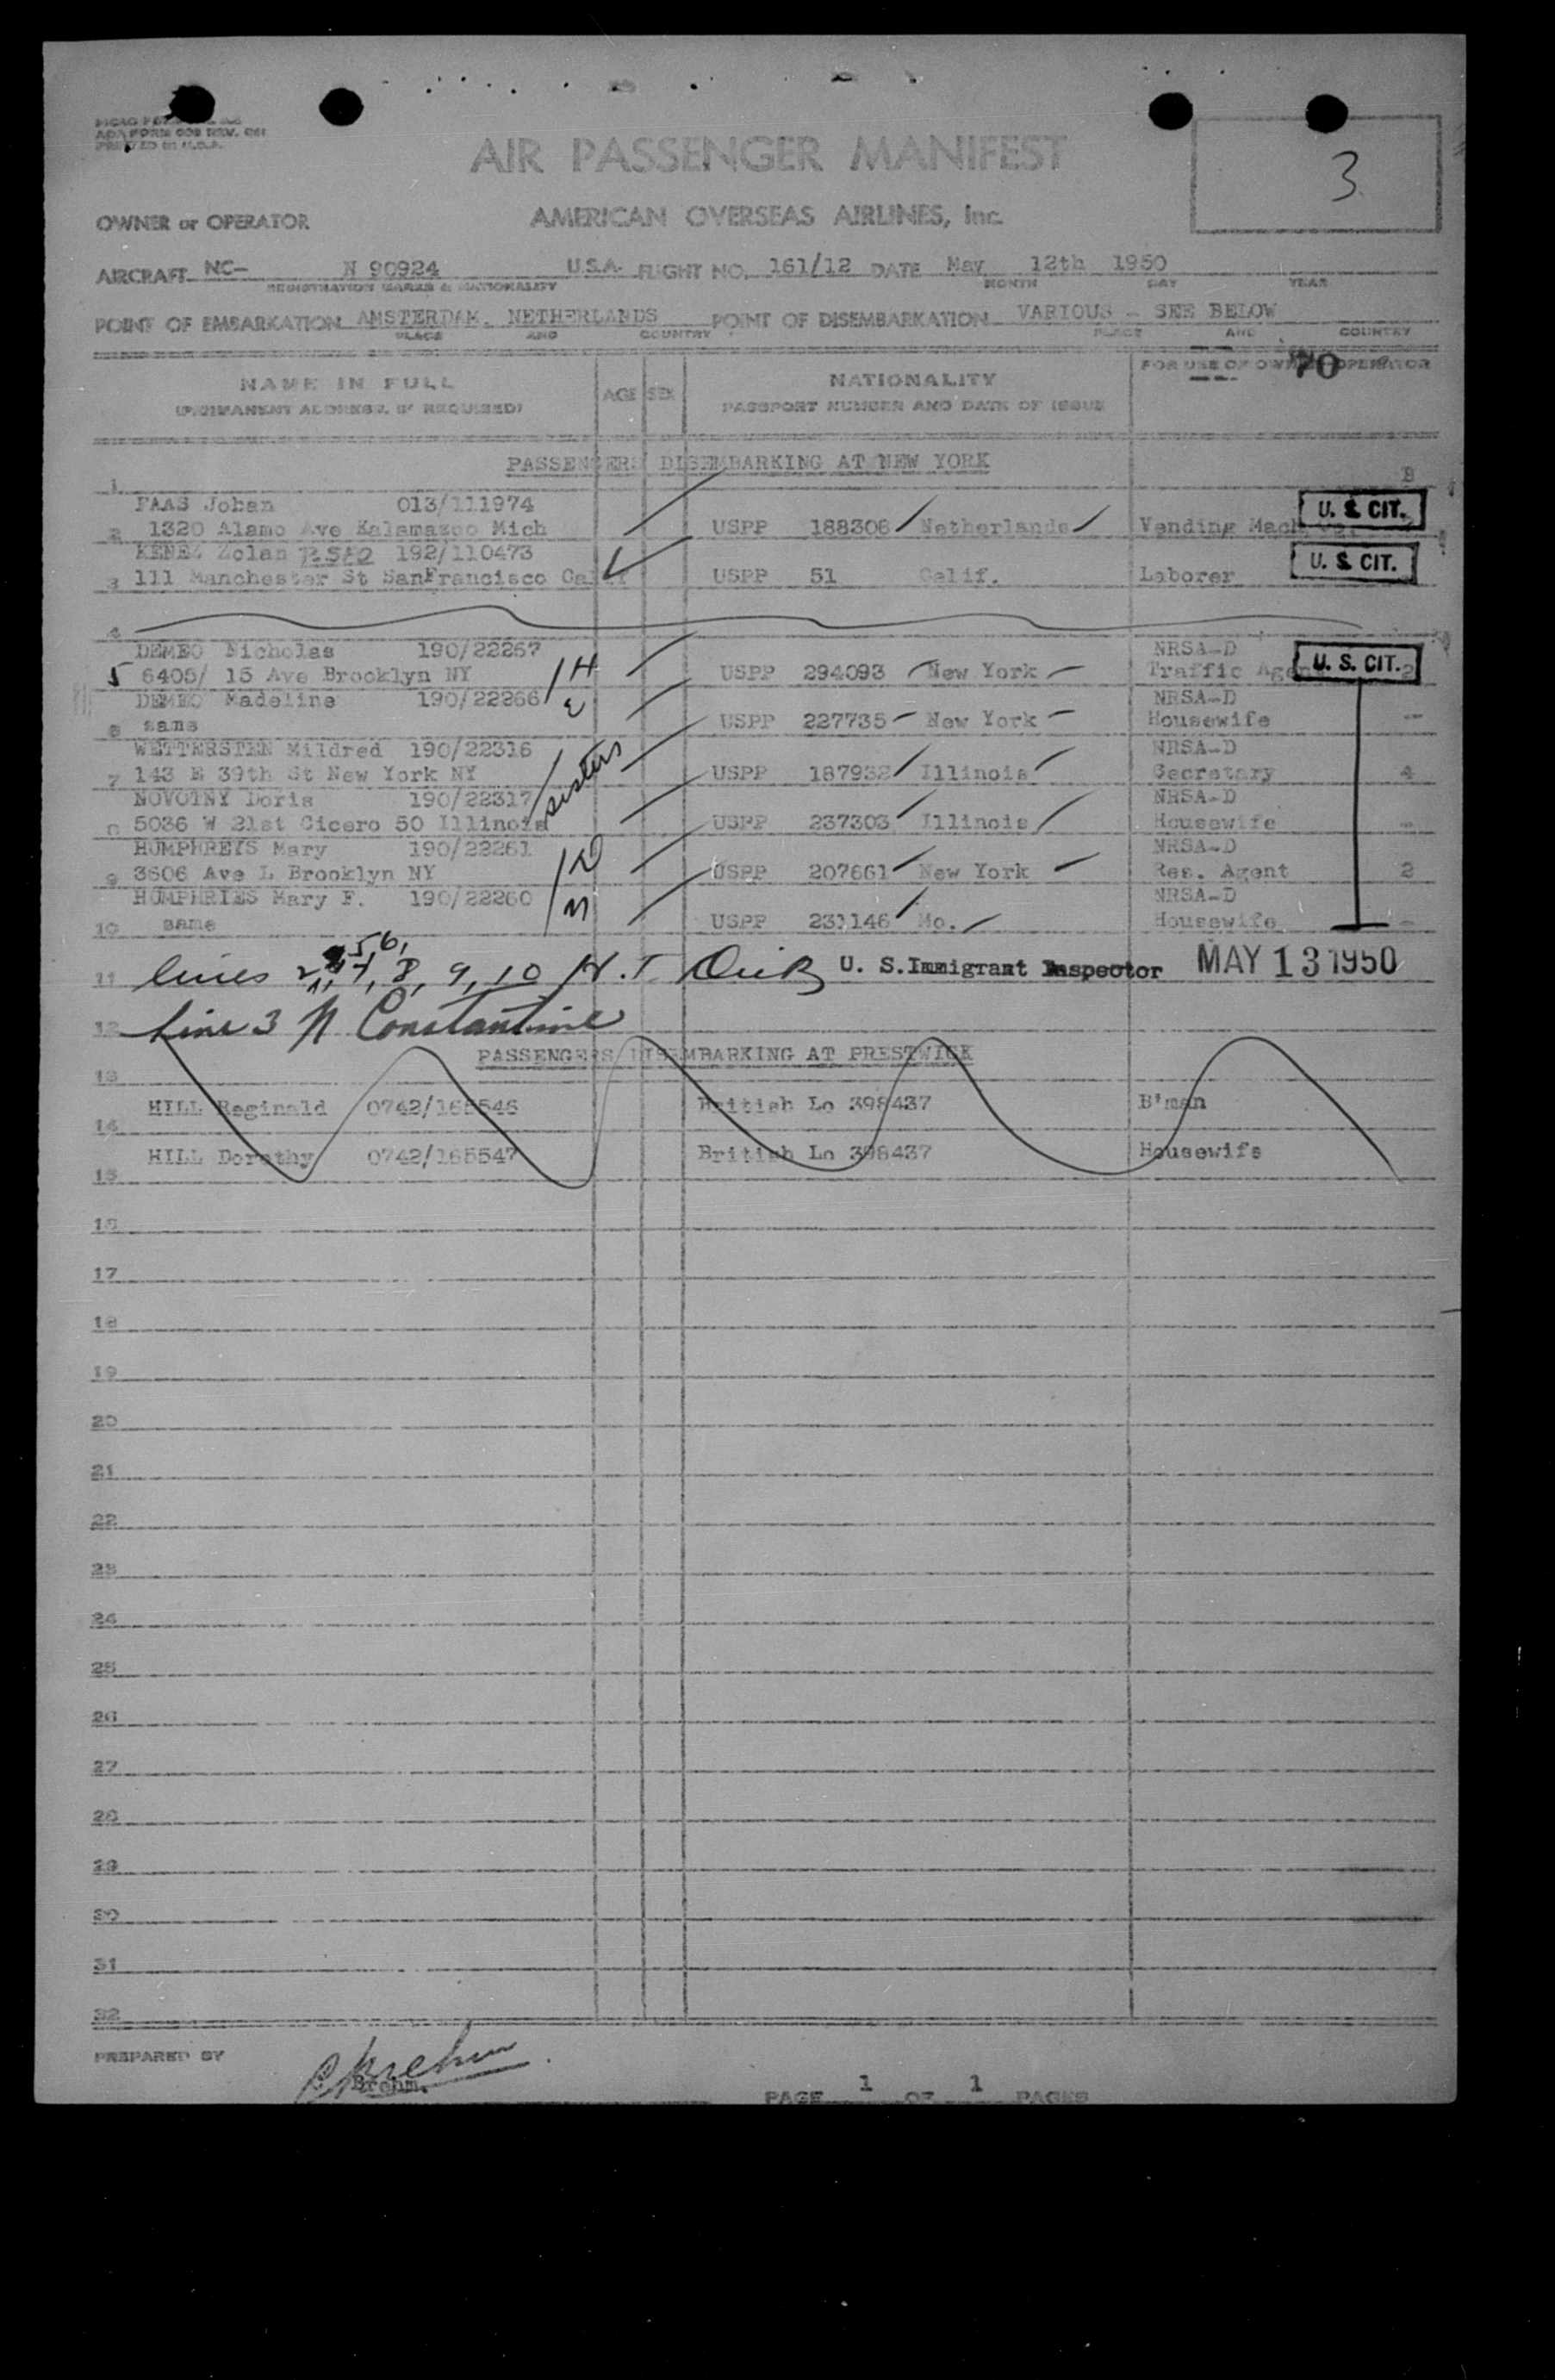 ADA FORM 008 REV.
PRINTED IN U.S.A.
AIR PASSENGER MANIFEST
3
OWNER or OPERATOR AMERICAN OVERSEAS AIRLINES, Inc.
AIRCRAFT NC- N 90924 U.S.A. FLIGHT NO. 161/12 DATE May 12th 1950
REGISTRATION MARKS & NATIONALITY MONTH DAY YEAR
POINT OF EMBARKATION AMSTERDAM. NETHERLANDS POINT OF DISEMBARKATION VARIOUS - SEE BELOW
PLACE AND COUNTRY PLACE AND COUNTRY
NAME IN FULL AGE SEX NATIONALITY FOR USE OF OWNER OPERATOR
70
(PERMANENT ADDRESS, IF REQUIRED) PASSPORT NUMBER AND DATE OF ISSUE
PASSENGERS DISEMBARKING AT NEW YORK
1 B
FAAS Johan 013/111974 U. S. CIT.
2 1320 Alamo Ave Kalamazoo Mich USPP 188308 Netherlands Vending Mach
KENEZ Zolan 192/110473 U. S. CIT.
3 111 Manchester St SanFrancisco Calif USPP 51 Calif. Laborer
4
DEMEO Nicholas 190/22267 NRSA-D U. S. CIT.
5 6405/ 15 Ave Brooklyn NY H USPP 294093 New York Traffic Agent 2
DEMEO Madeline 190/22266 NRSA-D
6 same USPP 227735 New York Housewife -
WETTERSTEN Mildred 190/22316 NRSA-D
7 143 E 39th St New York NY sisters USPP 187932 Illinois Secretary 4
NOVOTNY Doris 190/22317 NRSA-D
8 5036 W 21st Cicero 50 Illinois USPP 237303 Illinois Housewife -
HUMPHREYS Mary 190/22261 NRSA-D
9 3606 Ave L Brooklyn NY D USPP 207661 New York Res. Agent 2
HUMPHRIES Mary F. 190/22260 M NRSA-D
10 same USPP 231146 Mo. Housewife -
5, 6,
11 lines 2, 7, 8, 9, 10 U. S. Immigrant Inspector MAY 13 1950
12 Line 3 N Constantine
PASSENGERS DISEMBARKING AT PRESTWICK
13
HILL Reginald 0742/165546 British Lo 398437 B'man
14
HILL Dorothy 0742/165547 British Lo 398437 Housewife
15
16
17
18
19
20
21
22
23
24
25
26
27
28
29
30
31
32
PREPARED BY
Brehm.
PAGE 1 OF 1 PAGES